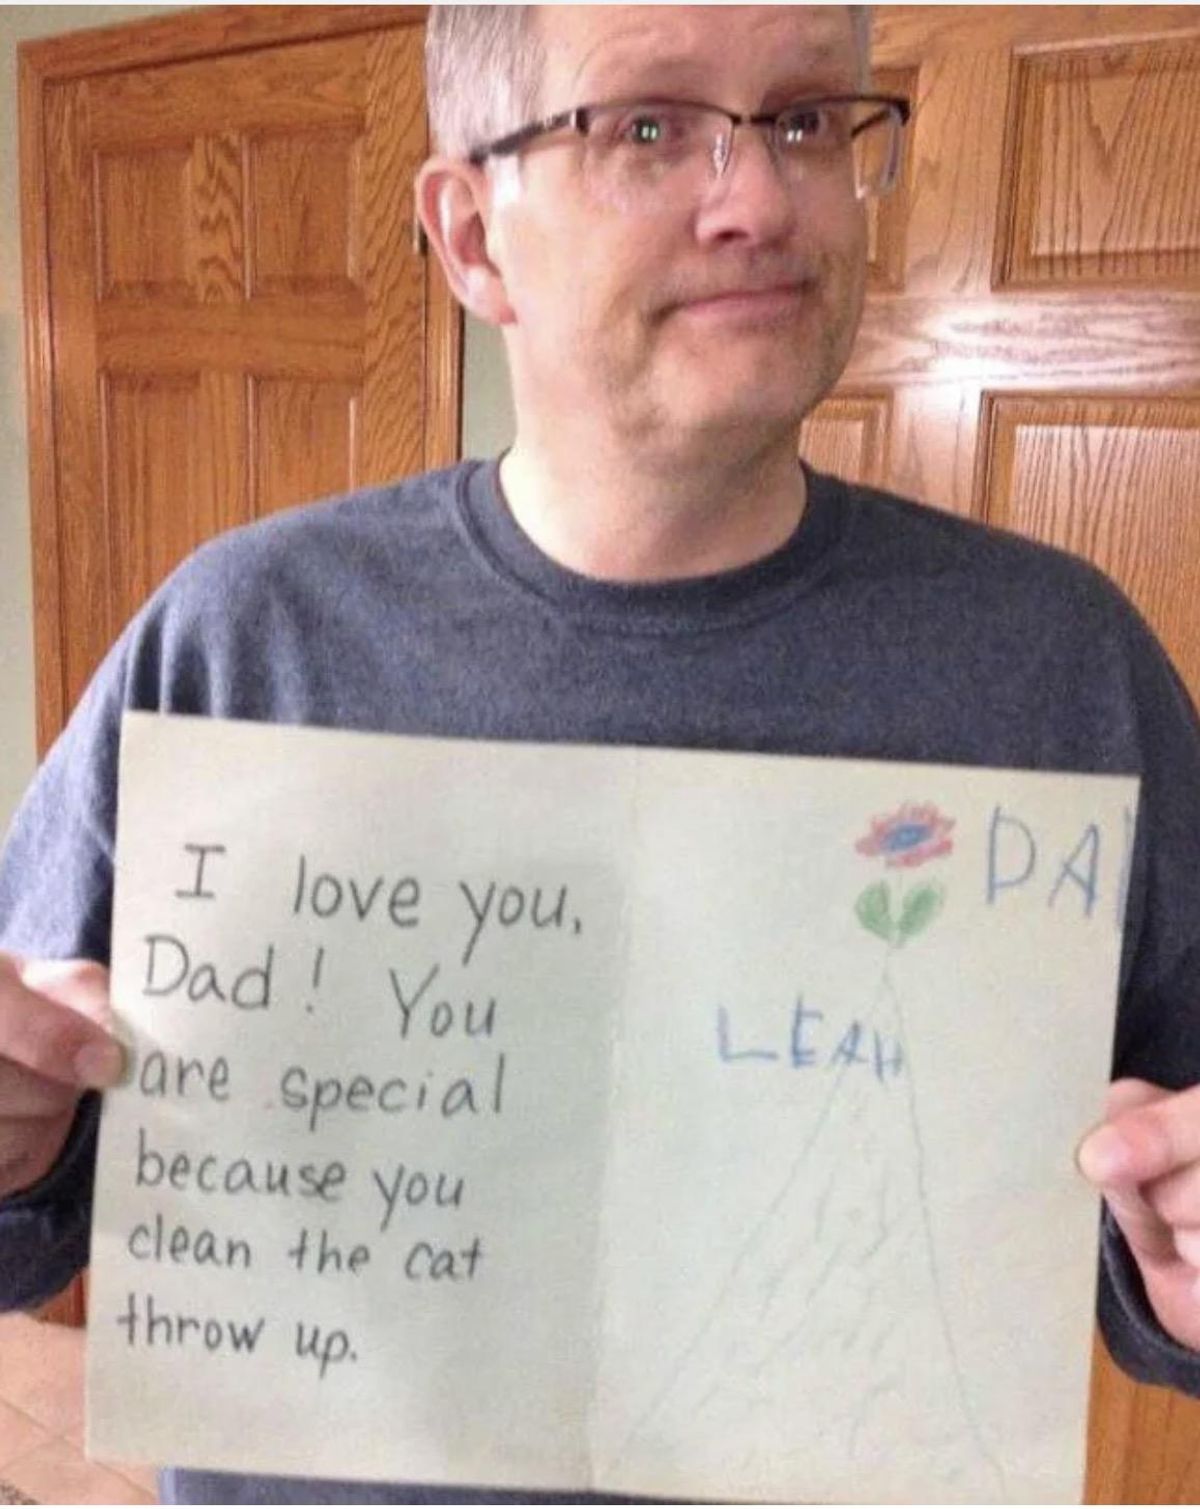 I love you,
Dad! You
are special
because you
clean the cat
throw up.
DA
LEAH